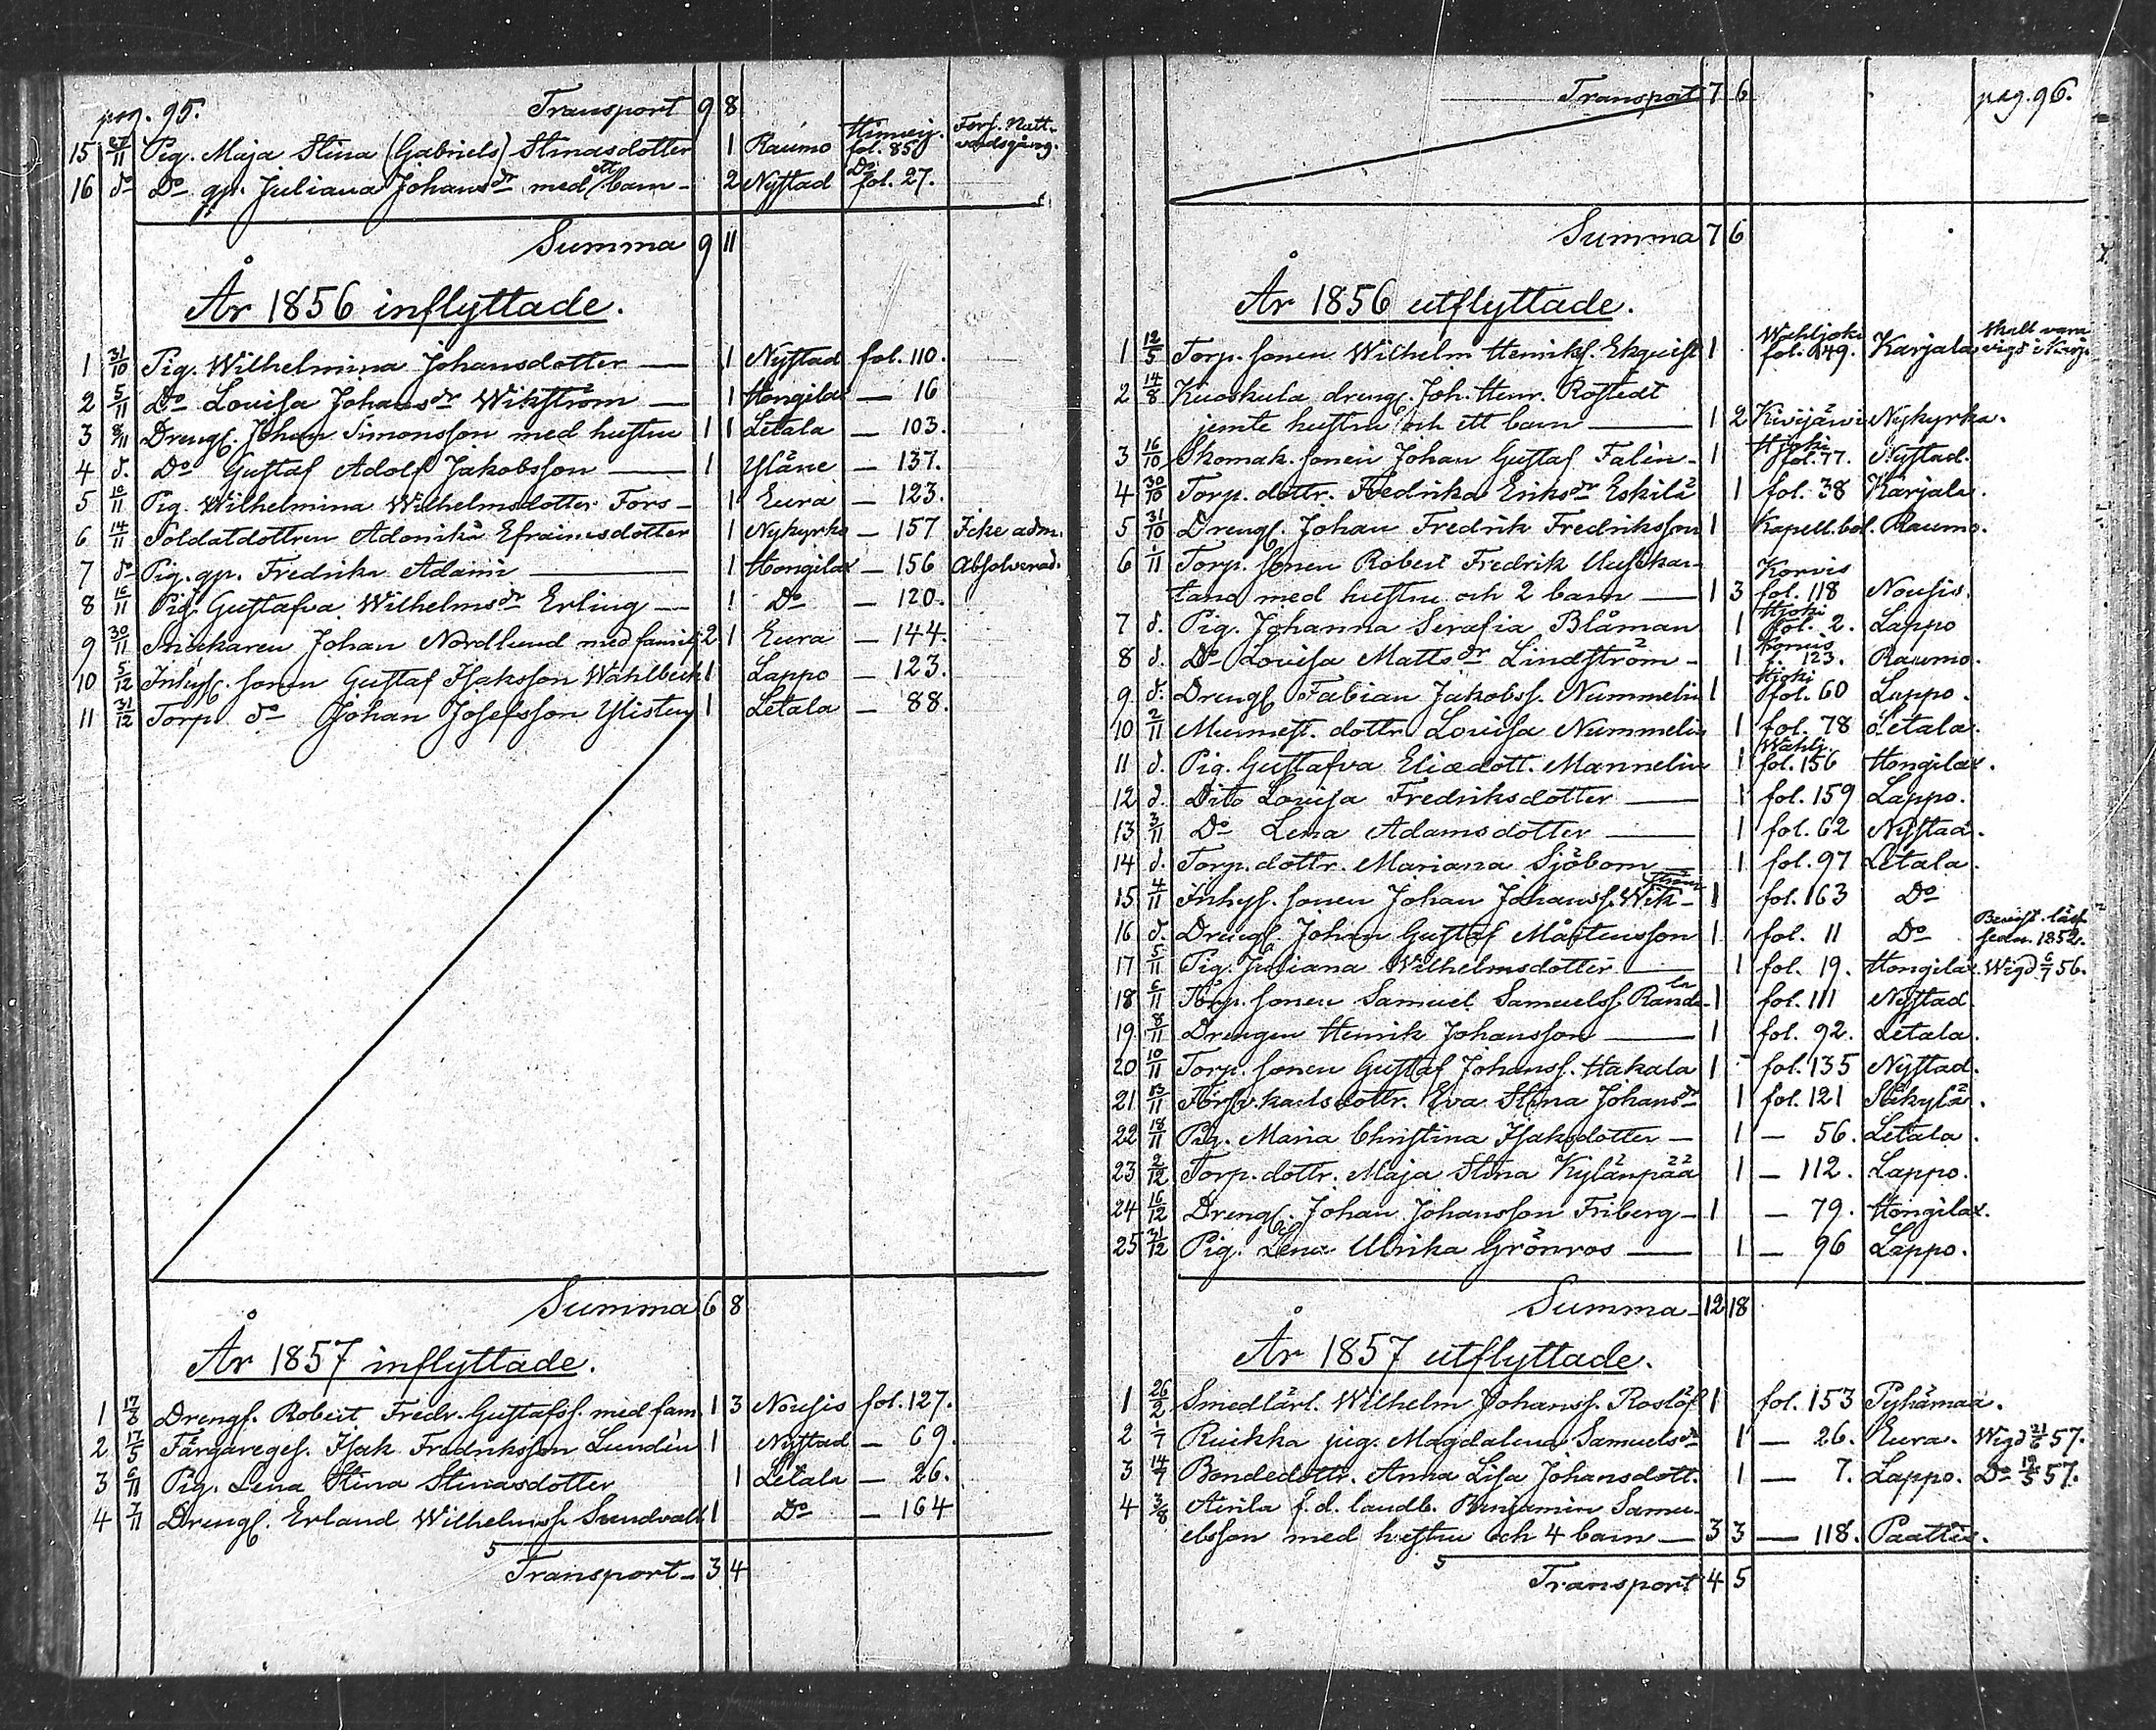 pag. 95. Transport 9 8
15 27/11 Pig. Maja Stina (Gabriels) Stinasdotter 1 Raumo fol. 85 Förs. Natt-vardsgång.
16 do Do gp. Juliana Johansdr med ett barn - 2 Nystad Do fol. 27.
Summa 9 11
År 1856 inflyttade.
1 31/10 Pig. Wilhelmina Johansdotter — 1 Nystad fol. 110.
2 5/11 Do Lovisa Johansdr Wikström — 1 Hongilax — 16
3 8/11 Drengs. Johan Simonsson med hustru 1 1 Letala — 103.
4 d. Do Gustaf Adolf Jakobsson — 1 Yläne — 137.
5 10/11 Pig. Wilhelmina Wilhelmsdotter Fors - 1 Eura — 123.
6 14/11 Soldatdottren Adonika Efraimsdotter 1 Nykyrko — 157 Icke adm.
7 do Pig. gp. Fredrika Adami — 1 Hongilax — 156 Absolverad.
8 16/11 Pig. Gustafva Wilhelmsdr Erling — 1 Do — 120.
9 30/11 Snickaren Johan Nordlund med familj 2 1 Eura — 144.
10 5/12 Inhys. sonen Gustaf Isaksson Wahlbeck 1 Lappo — 123.
11 31/12 Torp. do Johan Josefsson Ylisten 1 Letala — 88.
Summa 6 8
År 1857 inflyttade.
1 17/6 Drengs. Robert Fredr. Gustafss. med fam. 1 3 Nousis fol. 127.
2 17/5 Färgareges. Isak Fredriksson Lundén 1 Nystad — 69.
3 6/11 Pig. Lena Stina Stinasdotter 1 Letala — 26.
4 7/11 Drengs. Erland Wilhelmss. Sundvall 1 Do — 164
5 Transport - 3 4
Transport 7 6 pag. 96.
Summa 7 6
År 1856 utflyttade.
1 12/5 Torp. sonen Wilhelm Henrikss. Ekqvist 1 Wahljoki fol. 149. Karjala Skall vara vigd i Karj.
2 14/8 Kuoskula drengs. Joh. Henr. Rostedt
jemte hustru och ett barn — 1 2 Kivijärvi Nykyrka.
3 16/10 Skomak. sonen Johan Gustaf Falén - 1 Hjoki fol. 77. Nystad.
4 30/10 Torp. dottr. Fredrika Eriksdr Eskilä 1 fol. 38 Karjala.
5 31/10 Drengs. Johan Fredrik Fredriksson 1 Kapell.bol. Raumo.
6 1/11 Torp. sonen Robert Fredrik Uusikar-
tano med hustru och 2 barn — 1 3 Korvis fol. 118 Nousis.
7 d. Pig. Johanna Serafia Blåman 1 Hjoki fol. 2. Lappo
8 d. Do Lovisa Mattsdr Lindström - 1 Korvis f. 123. Raumo.
9 d. Drengs. Fabian Jakobss. Nummelin 1 Hjoki fol. 60 Lappo.
10 2/11 dottr. Lovisa Nummelin 1 fol. 78 Letala.
11 d. Pig. Gustafva Eliædott. Mannelin 1 Wahlj. fol. 156 Hongilax.
12 d. Dito Lovisa Fredriksdotter — 1 fol. 159 Lappo.
13 3/11 Do Lena Adamsdotter — 1 fol. 62 Nystad.
14 d. Torp. dottr. Mariana Sjöbom — 1 fol. 97 Letala.
15 4/11 Inhys. sonen Johan Johanss. Wikström 1 fol. 163 Do
16 d. Drengs. Johan Gustaf Mårtensson 1 fol. 11 Do sedn. 1852.
17 5/11 Pig. Juliana Wilhelmsdotter — 1 fol. 19. Hongilax. Wigd 6/7 56.
18 6/11 Torp. sonen Samuel Samuelss. Randela 1 fol. 111 Nystad
19 8/11 Drengen Henrik Johansson — 1 fol. 92. Letala.
20 10/11 Torp. sonen Gustaf Johanss. Hakala 1 fol. 135 Nystad.
21 13/11 Försv.karlsdottr. Eva Stina Johansdr 1 fol. 121 Säkylä.
22 18/11 Pig. Maria Christina Isaksdotter — 1 — 56. Letala.
23 9/12 Torp. dottr. Maja Stina Kylänpää 1 — 112. Lappo.
24 16/12 Drengs. Johan Johansson Friberg - 1 — 79. Hongilax.
25 31/12 Pig. Lena Ulrika Grönroos — 1 — 96 Lappo.
Summa - 12 18
År 1857 utflyttade.
1 26/2 Smedlärl. Wilhelm Johanss. Roslöf 1 fol. 153 Pyhämaa.
2 1/7 Ruikka pig. Magdalena Samuelsdr 1 — 26. Eura. Wigd 21/6 57.
3 14/7 Bondedottr. Anna Lisa Johansdott. 1 — 7. Lappo. Do 19/5 57.
4 3/8 Anila f.d. landb. Benjamin Samu-
elsson med hustru och 4 barn — 3 3 — 118. Paattis.
5 Transport 4 5